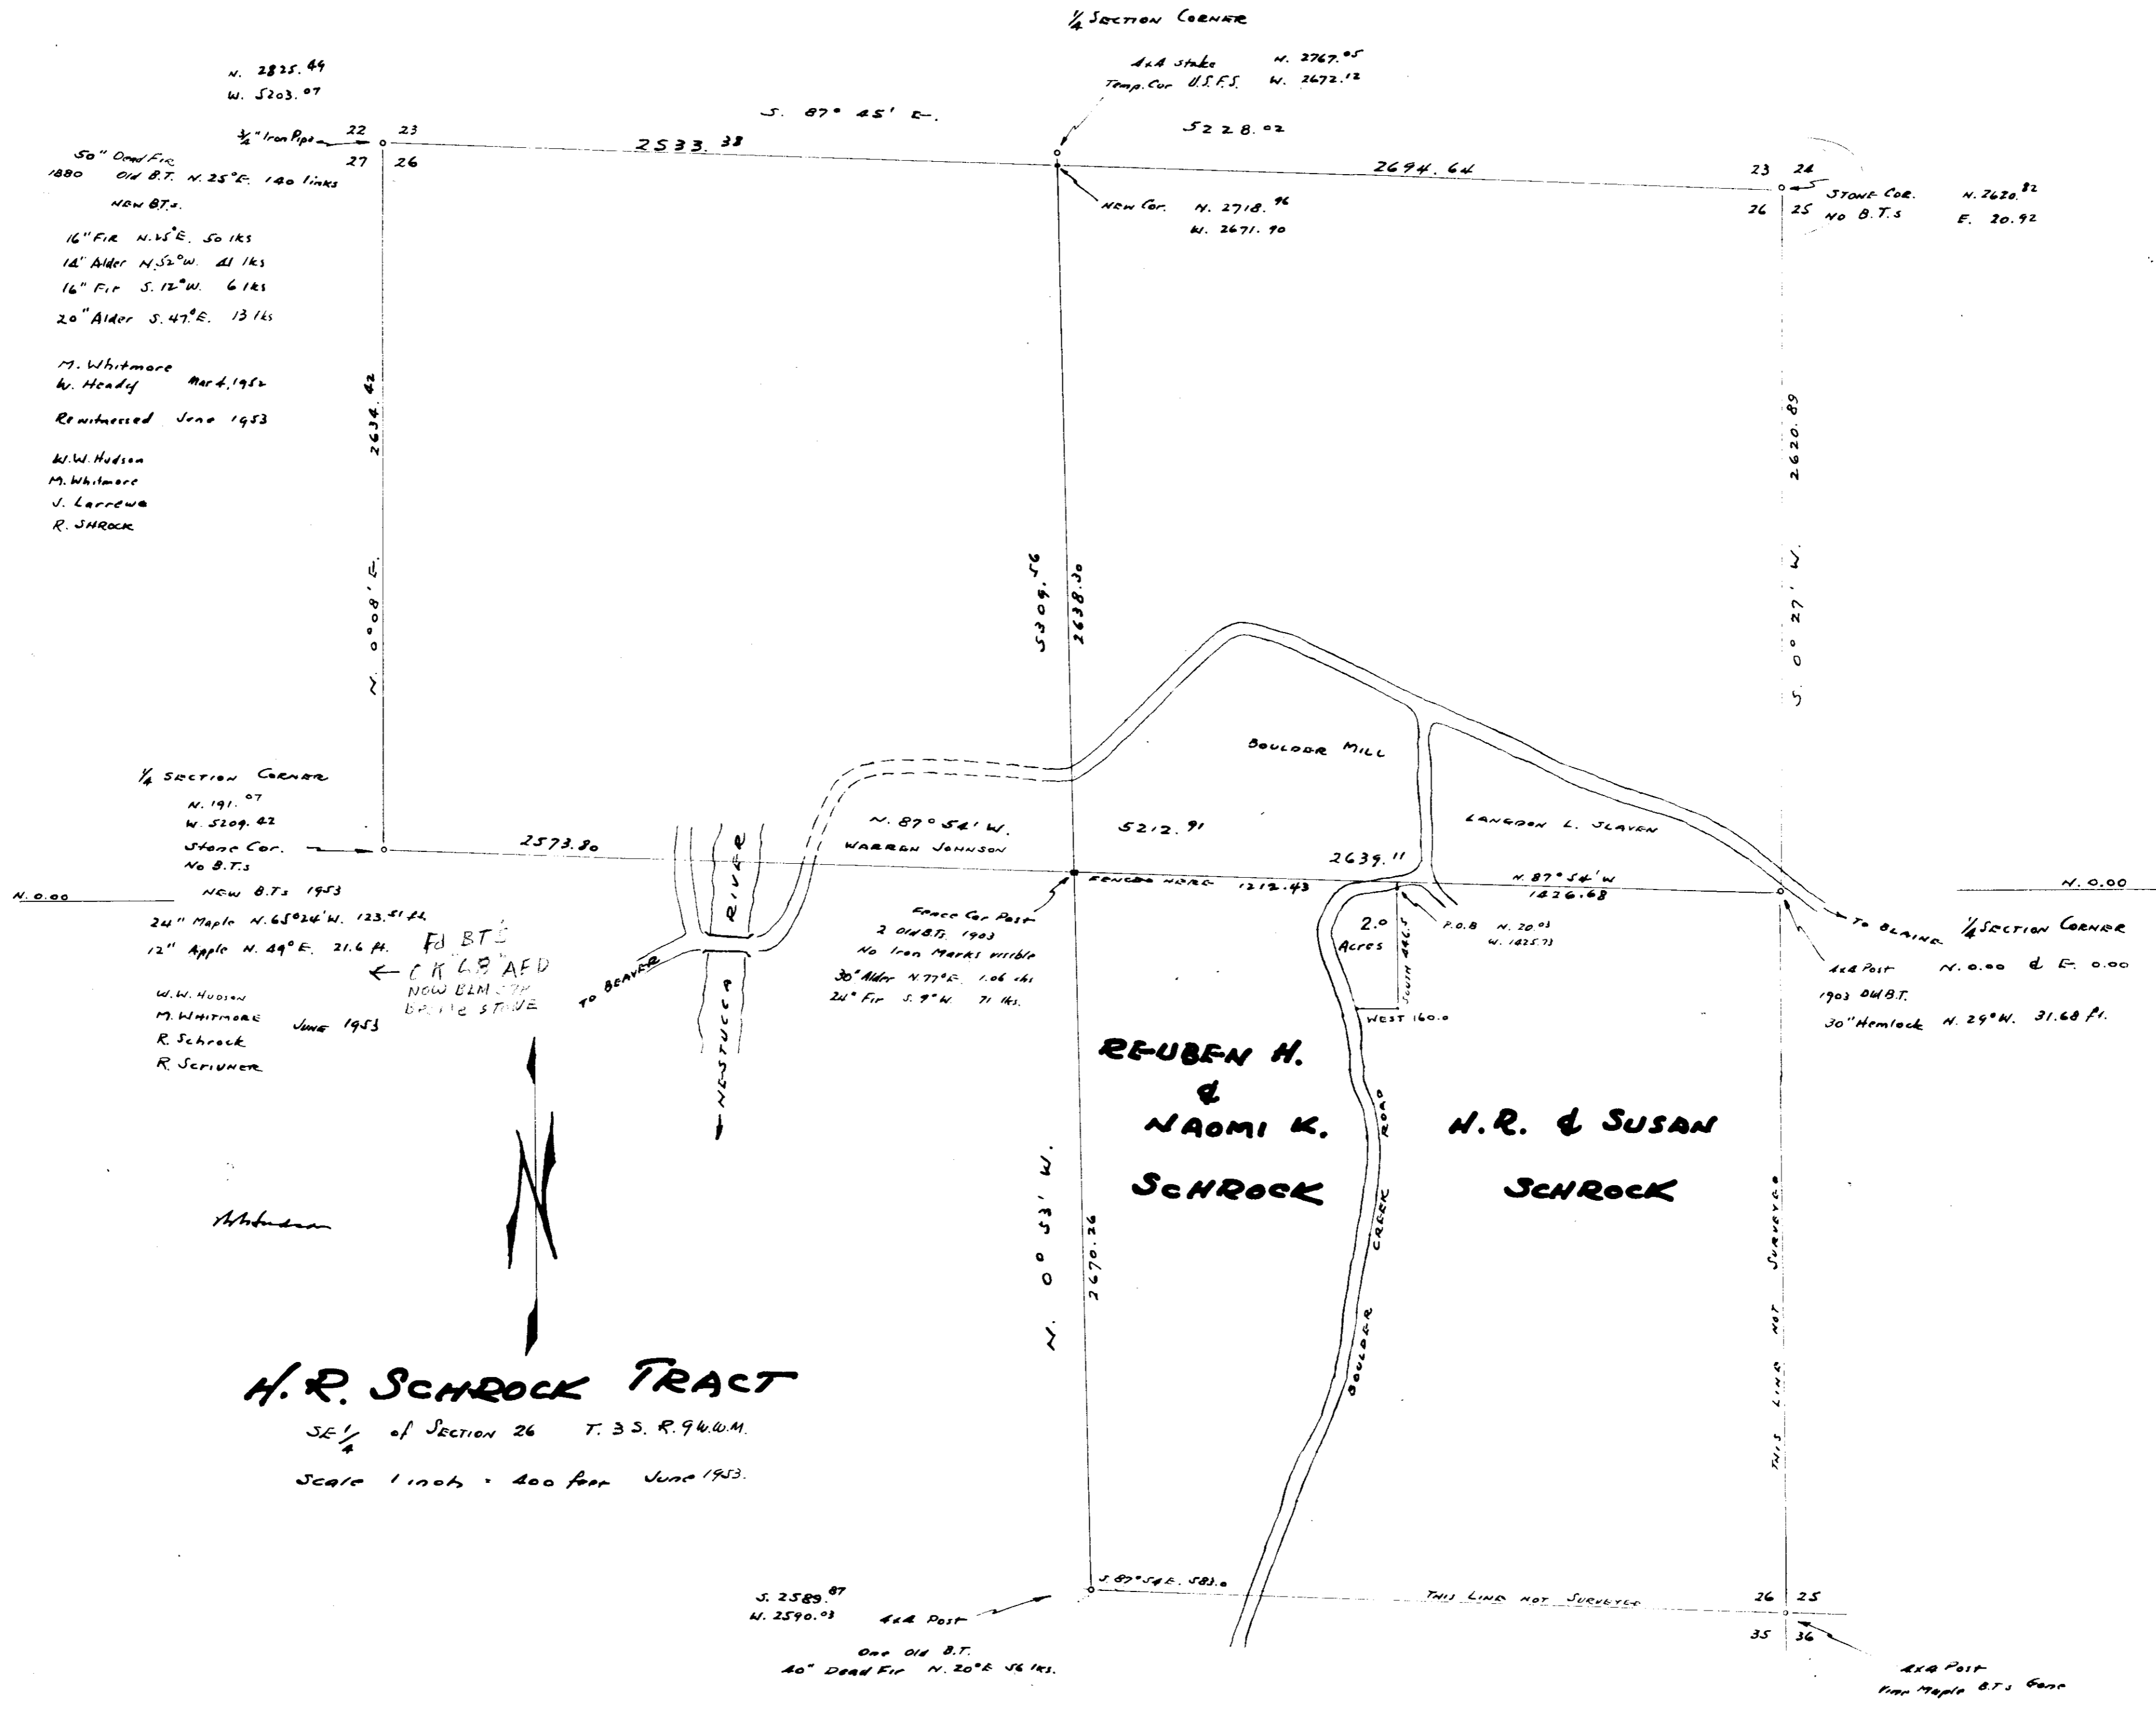 1/4 SECTION CORNER
4x4 Stake N. 2767.05
Temp. Cor U.S.F.S. W. 2672.12
N. 2825.49
W. 5203.07
S. 87° 45' E.
5228.02
3/4" Iron Pipe
22 23
27 26
2533.38
2694.64
23 24
26 25
STONE COR. N. 2620.82
NO B.T.s E. 20.92
NEW COR. N. 2718.96
W. 2671.90
50" Dead Fir
1880 Old B.T. N. 25° E. 140 links
NEW BT.s
16" FIR N. 25° E. 50 lks
14" Alder N. 52° W. 41 lks
16" Fir S. 12° W. 6 lks
20" Alder S. 47° E. 13 lks
M. Whitmore
W. Heady Mar 4, 1952
Rewitnessed June 1953
W.W. Hudson
M. Whitmore
J. Larrewe
R. SHROCK
2634.42
N. 0° 08' E.
5309.56
2638.30
2620.89
S. 0° 27' W.
BOULDER MILL
LANGDON L. SLAVEN
1/4 SECTION CORNER
N. 191.07
W. 5209.42
Stone Cor.
No B.T.s
NEW B.T.s 1953
24" Maple N. 65° 24' W. 123.51 ft.
12" Apple N. 49° E. 21.6 ft.
W.W. HUDSON
M. WHITMORE JUNE 1953
R. Schrock
R. SCRIVNER
Fd BT'S
CK "68" AFD
NOW BLM
STONE
N. 0.00
2573.80
N. 87° 54' W.
WARREN JOHNSON
5212.91
2639.11
FENCED HERE 1212.43
N. 87° 54' W
1426.68
N. 0.00
RIVER
NESTUCCA
TO BEAVER
Fence Cor Post
2 Old B.Ts. 1903
No Iron Marks visible
30" Alder N. 77° E. 1.06 chs
24" Fir S. 9° W. 71 lks.
2.0
Acres
SOUTH 446.5
WEST 160.0
P.O.B N. 20.03
W. 1425.73
TO BLAINE
1/4 SECTION CORNER
4x4 Post N. 0.00 & E. 0.00
1903 Old B.T.
30" Hemlock N. 29° W. 31.68 ft.
REUBEN H.
&
NAOMI K.
SCHROCK
H.R. & SUSAN
SCHROCK
BOULDER CREEK ROAD
N. 0° 53' W.
2670.26
THIS LINE NOT SURVEYED
N
H.R. SCHROCK TRACT
SE 1/4 of SECTION 26 T. 3 S. R. 9 W.W.M.
Scale 1 inch = 400 feet June 1953.
S. 2589.87
W. 2590.03 4x4 Post
One Old B.T.
40" Dead Fir N. 20° E 56 lks.
S. 87° 54' E. 583.0
THIS LINE NOT SURVEYED
26 25
35 36
4x4 Post
Vine Maple B.T.s Gone